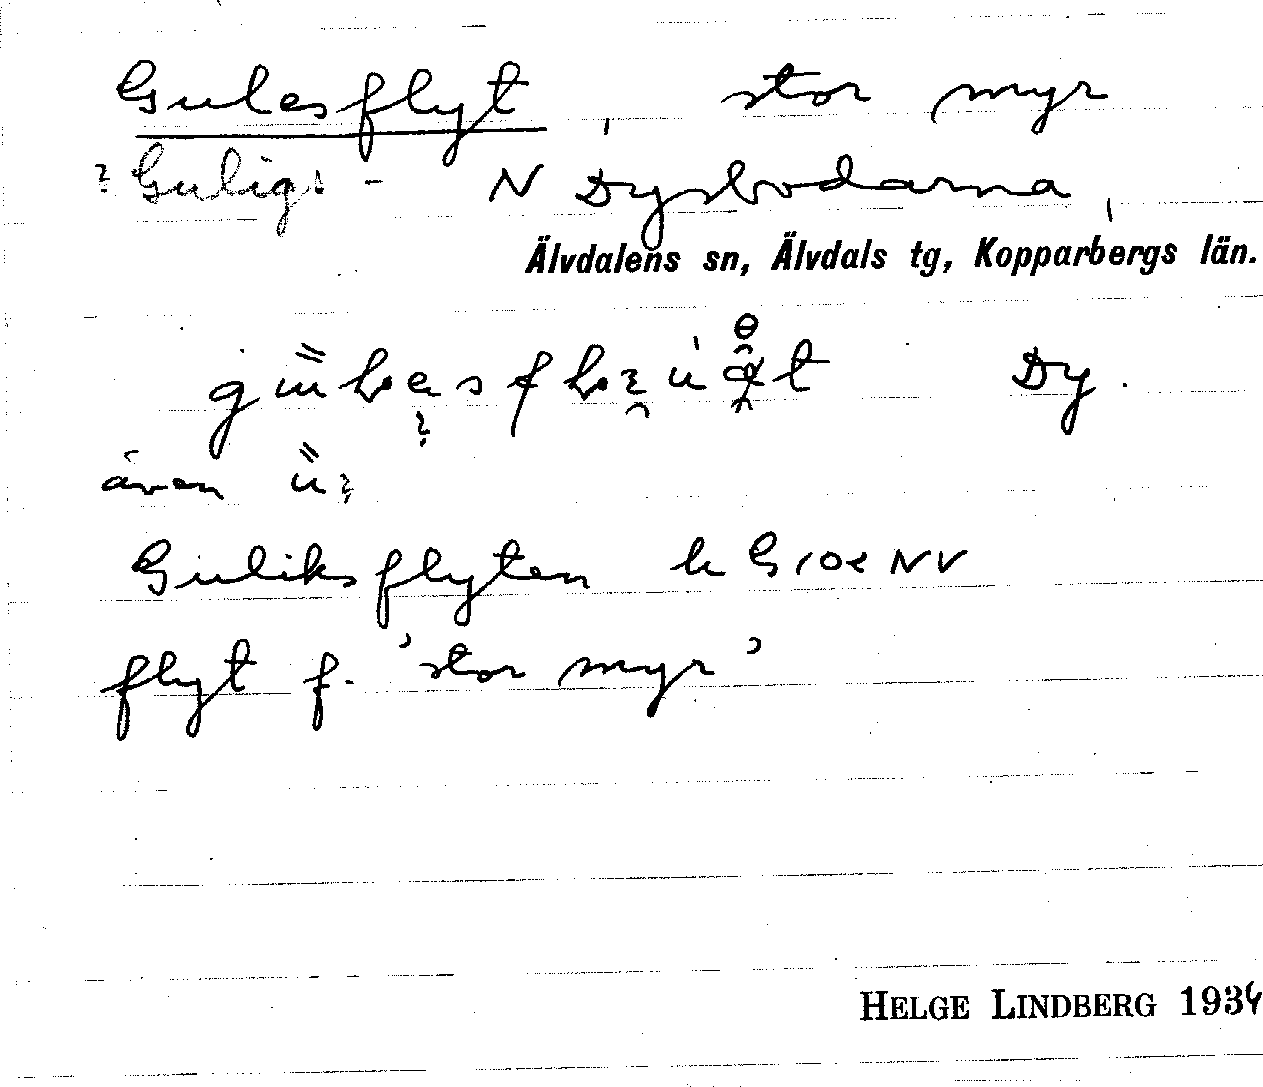 Gulesflyt, stor myr
? Guligs - N Dysbodarna,
Älvdalens sn, Älvdals tg, Kopparbergs län.
Dy.
även
Guliksflyten k G 10e NV
flyt f. 'stor myr'
HELGE LINDBERG 1934